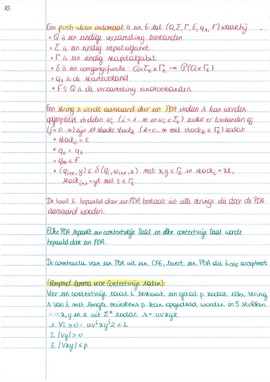 10.
Een push-down automaat is een 6-tal (Q, Σ, Γ, δ, q₁, F) waarbij
• Q is een eindige verzameling toestanden
• Σ is een eindig inputalfabet
• Γ is een eindig stapelalfabet
• δ is een overgangsfunctie Q×Σε×Γε → P(Q×Γε)
• q₁ is de starttoestand
• F ⊆ Q is de verzameling eindtoestanden
Een string s wordt aanvaard door een PDA indien s kan worden
opgesplitst in delen wᵢ (i = 1..m en wᵢ ∈ Σε) zodat er toestanden qⱼ
(j = 0..m) zijn en stacks stackₖ (k = 0..m met stackₖ ∈ Γ*) zodat
• stack₀ = ε
• q₀ = q₁
• qₘ ∈ F
• (qᵢ₊₁, y) ∈ δ(qᵢ, wᵢ₊₁, x) met x,y ∈ Γε en stackᵢ = xt,
stackᵢ₊₁ = yt met t ∈ Γ*
De taal L bepaald door een PDA bestaat uit alle strings die door de PDA
aanvaard worden.
Elke PDA bepaalt een contextvrije taal en elke contextvrije taal wordt
bepaald door een PDA.
De constructie van een PDA uit een CFG, levert een PDA die L_CFG accepteert.
(Pompend lemma voor contextvrije talen):
Voor een contextvrije taal L bestaat een getal p zodat elke string
s van L met lengte minstens p kan opgedeeld worden in 5 stukken
u, v, x, y en z uit Σ* zodat s = uvxyz
1. ∀i ≥ 0: uvⁱxyⁱz ∈ L
2. |vy| > 0
3. |vxy| ≤ p